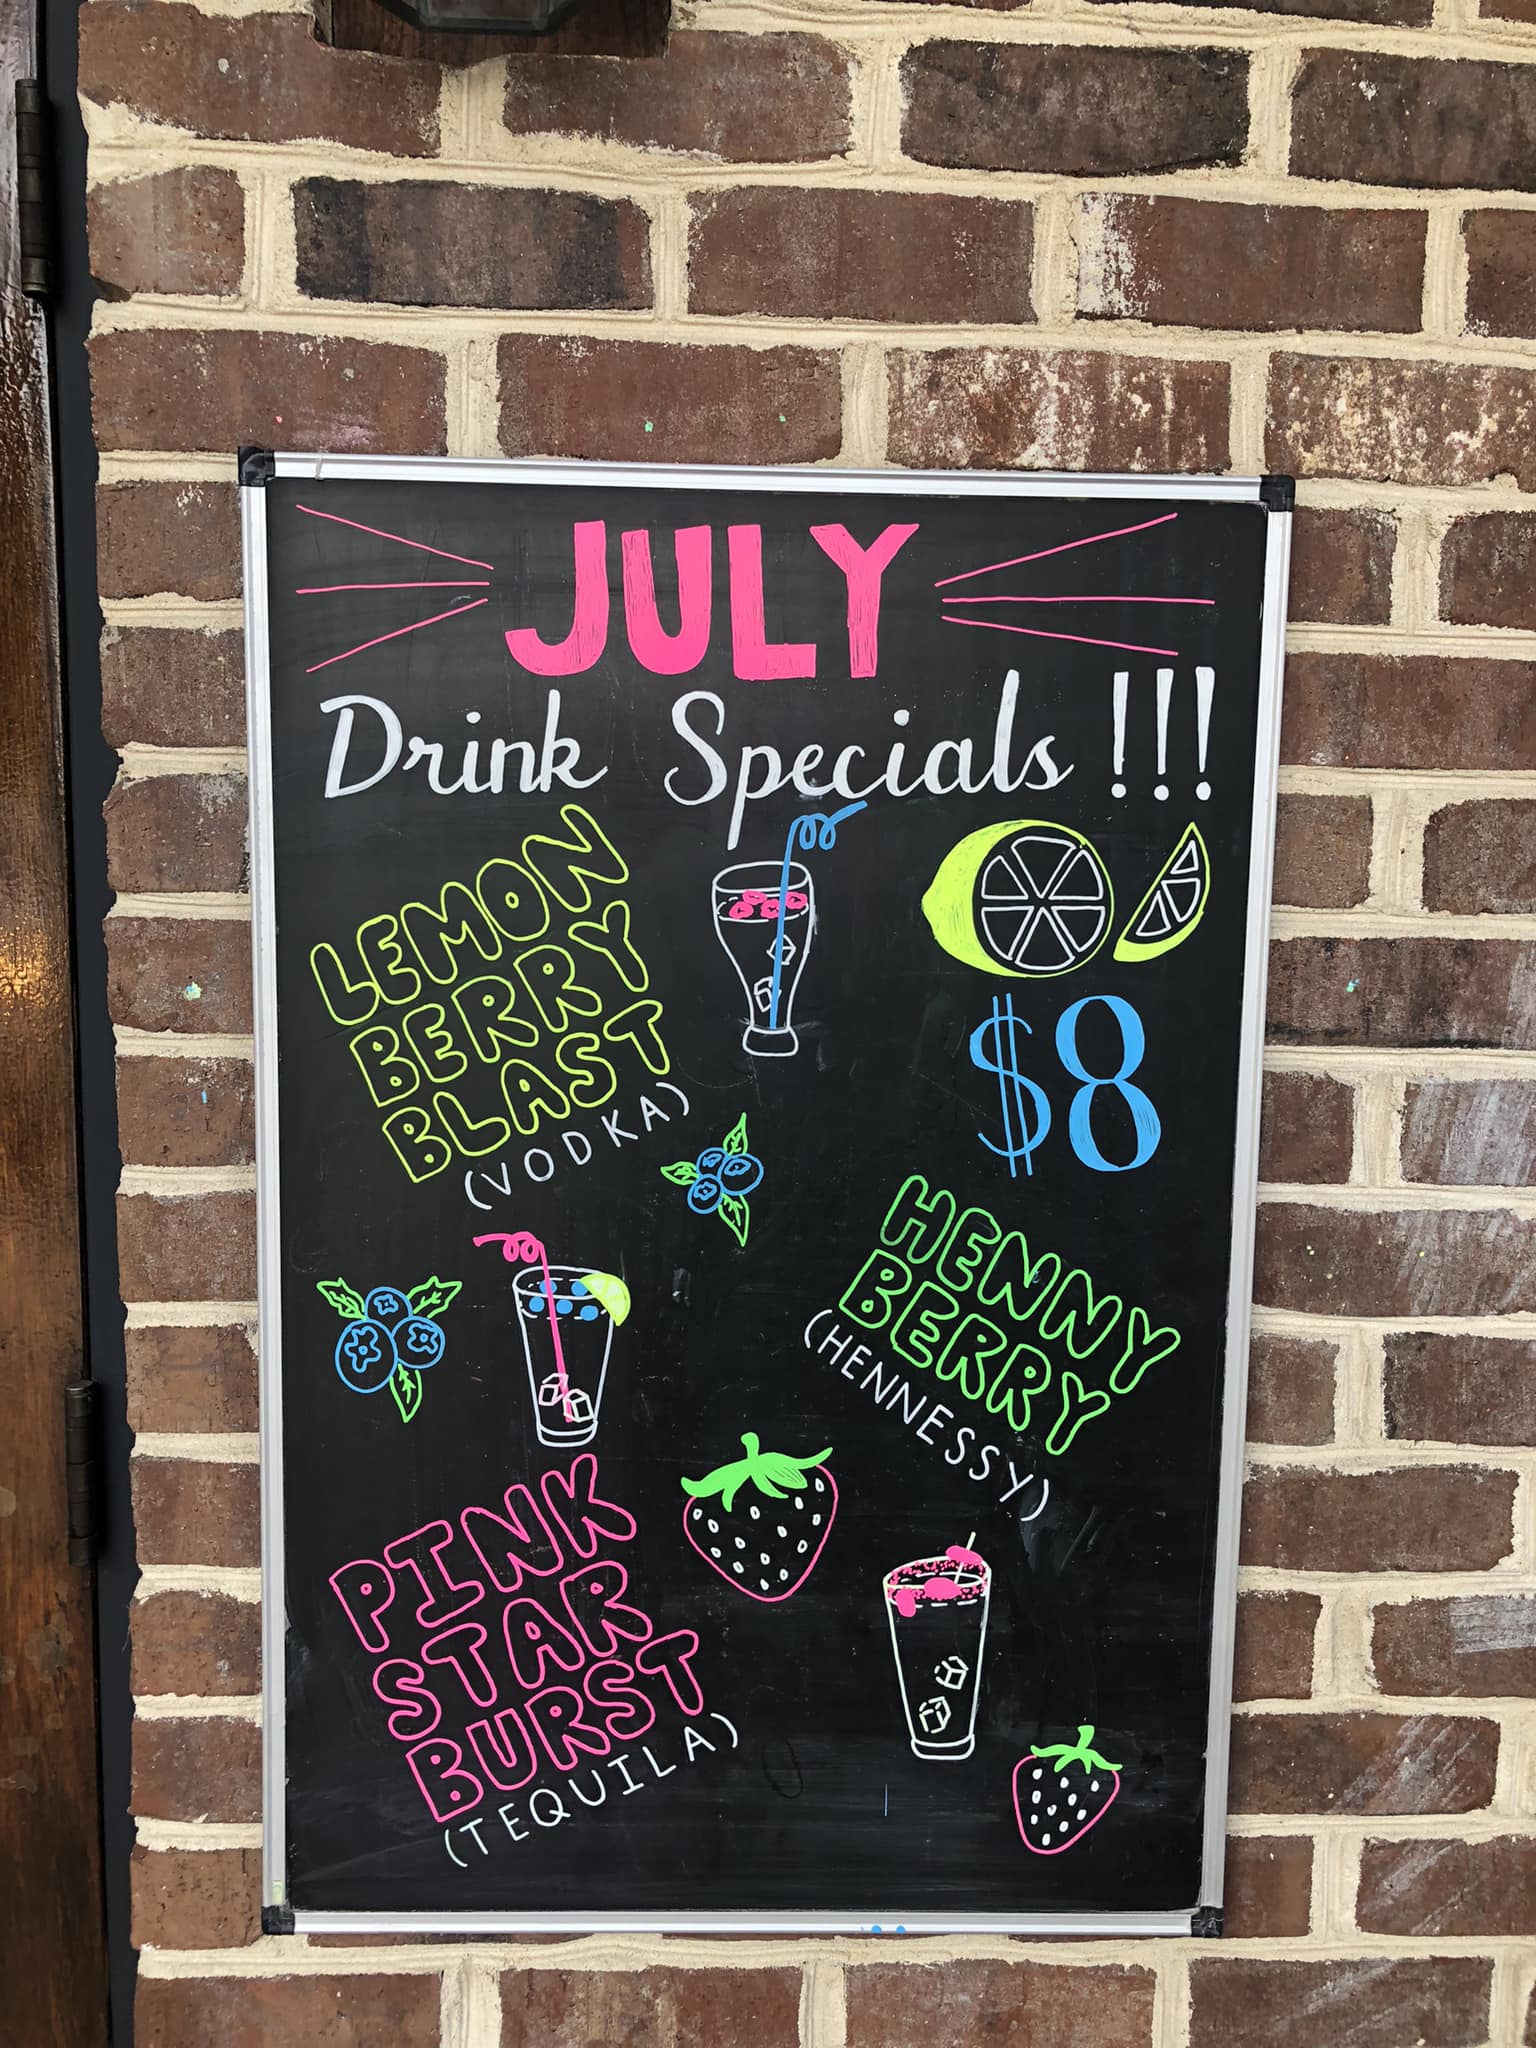 JULY
Drink Specials !!!
LEMON
BERRY
BLAST
(VODKA)
$8
HENNY
BERRY
(HENNESSY)
PINK
STAR
BURST
(TEQUILA)